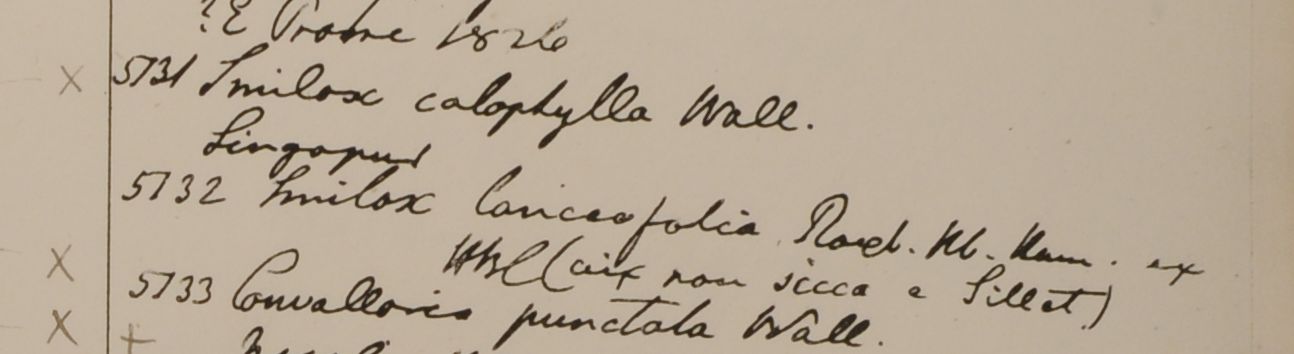 ?E Prome 1826
5731 Smilax calophylla Wall.
Singapur
5732 Smilax lanceofolia Roxb. Hb. Ham. ex
HBC (aix non sicca e Sillet)
5733 Convallaria punctata Wall.